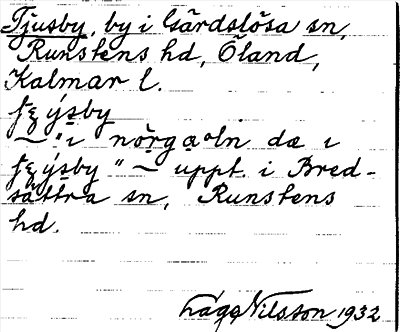 Tjusby, by i Gärdslösa sn,
Runstens hd, Öland,
Kalmar l.
— "i nǫrgaºln dæ i
" — uppt. i Bred-
sättra sn, Runstens
hd.
Nilsson 1932